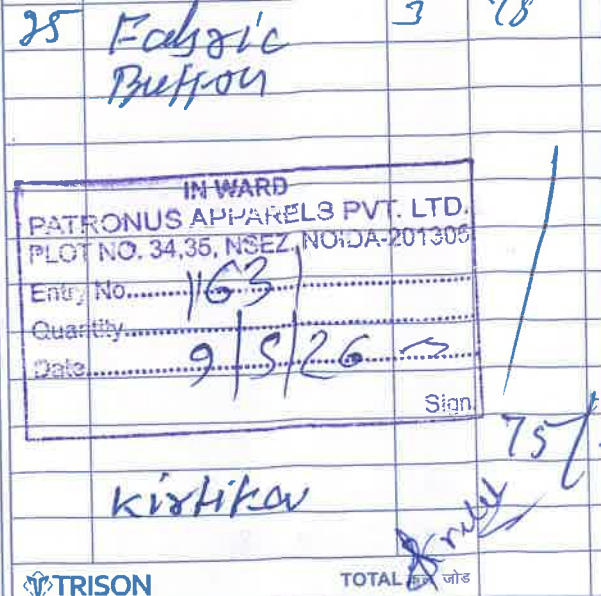 25 Fabric 3 78
Button
IN WARD
PATRONUS APPARELS PVT. LTD.
PLOT NO. 34,35, NSEZ, NOIDA-201305
Entry No. 1163
Quantity
Date 9/5/26
Sign.
75/
Kirtika
TRISON TOTAL कुल जोड